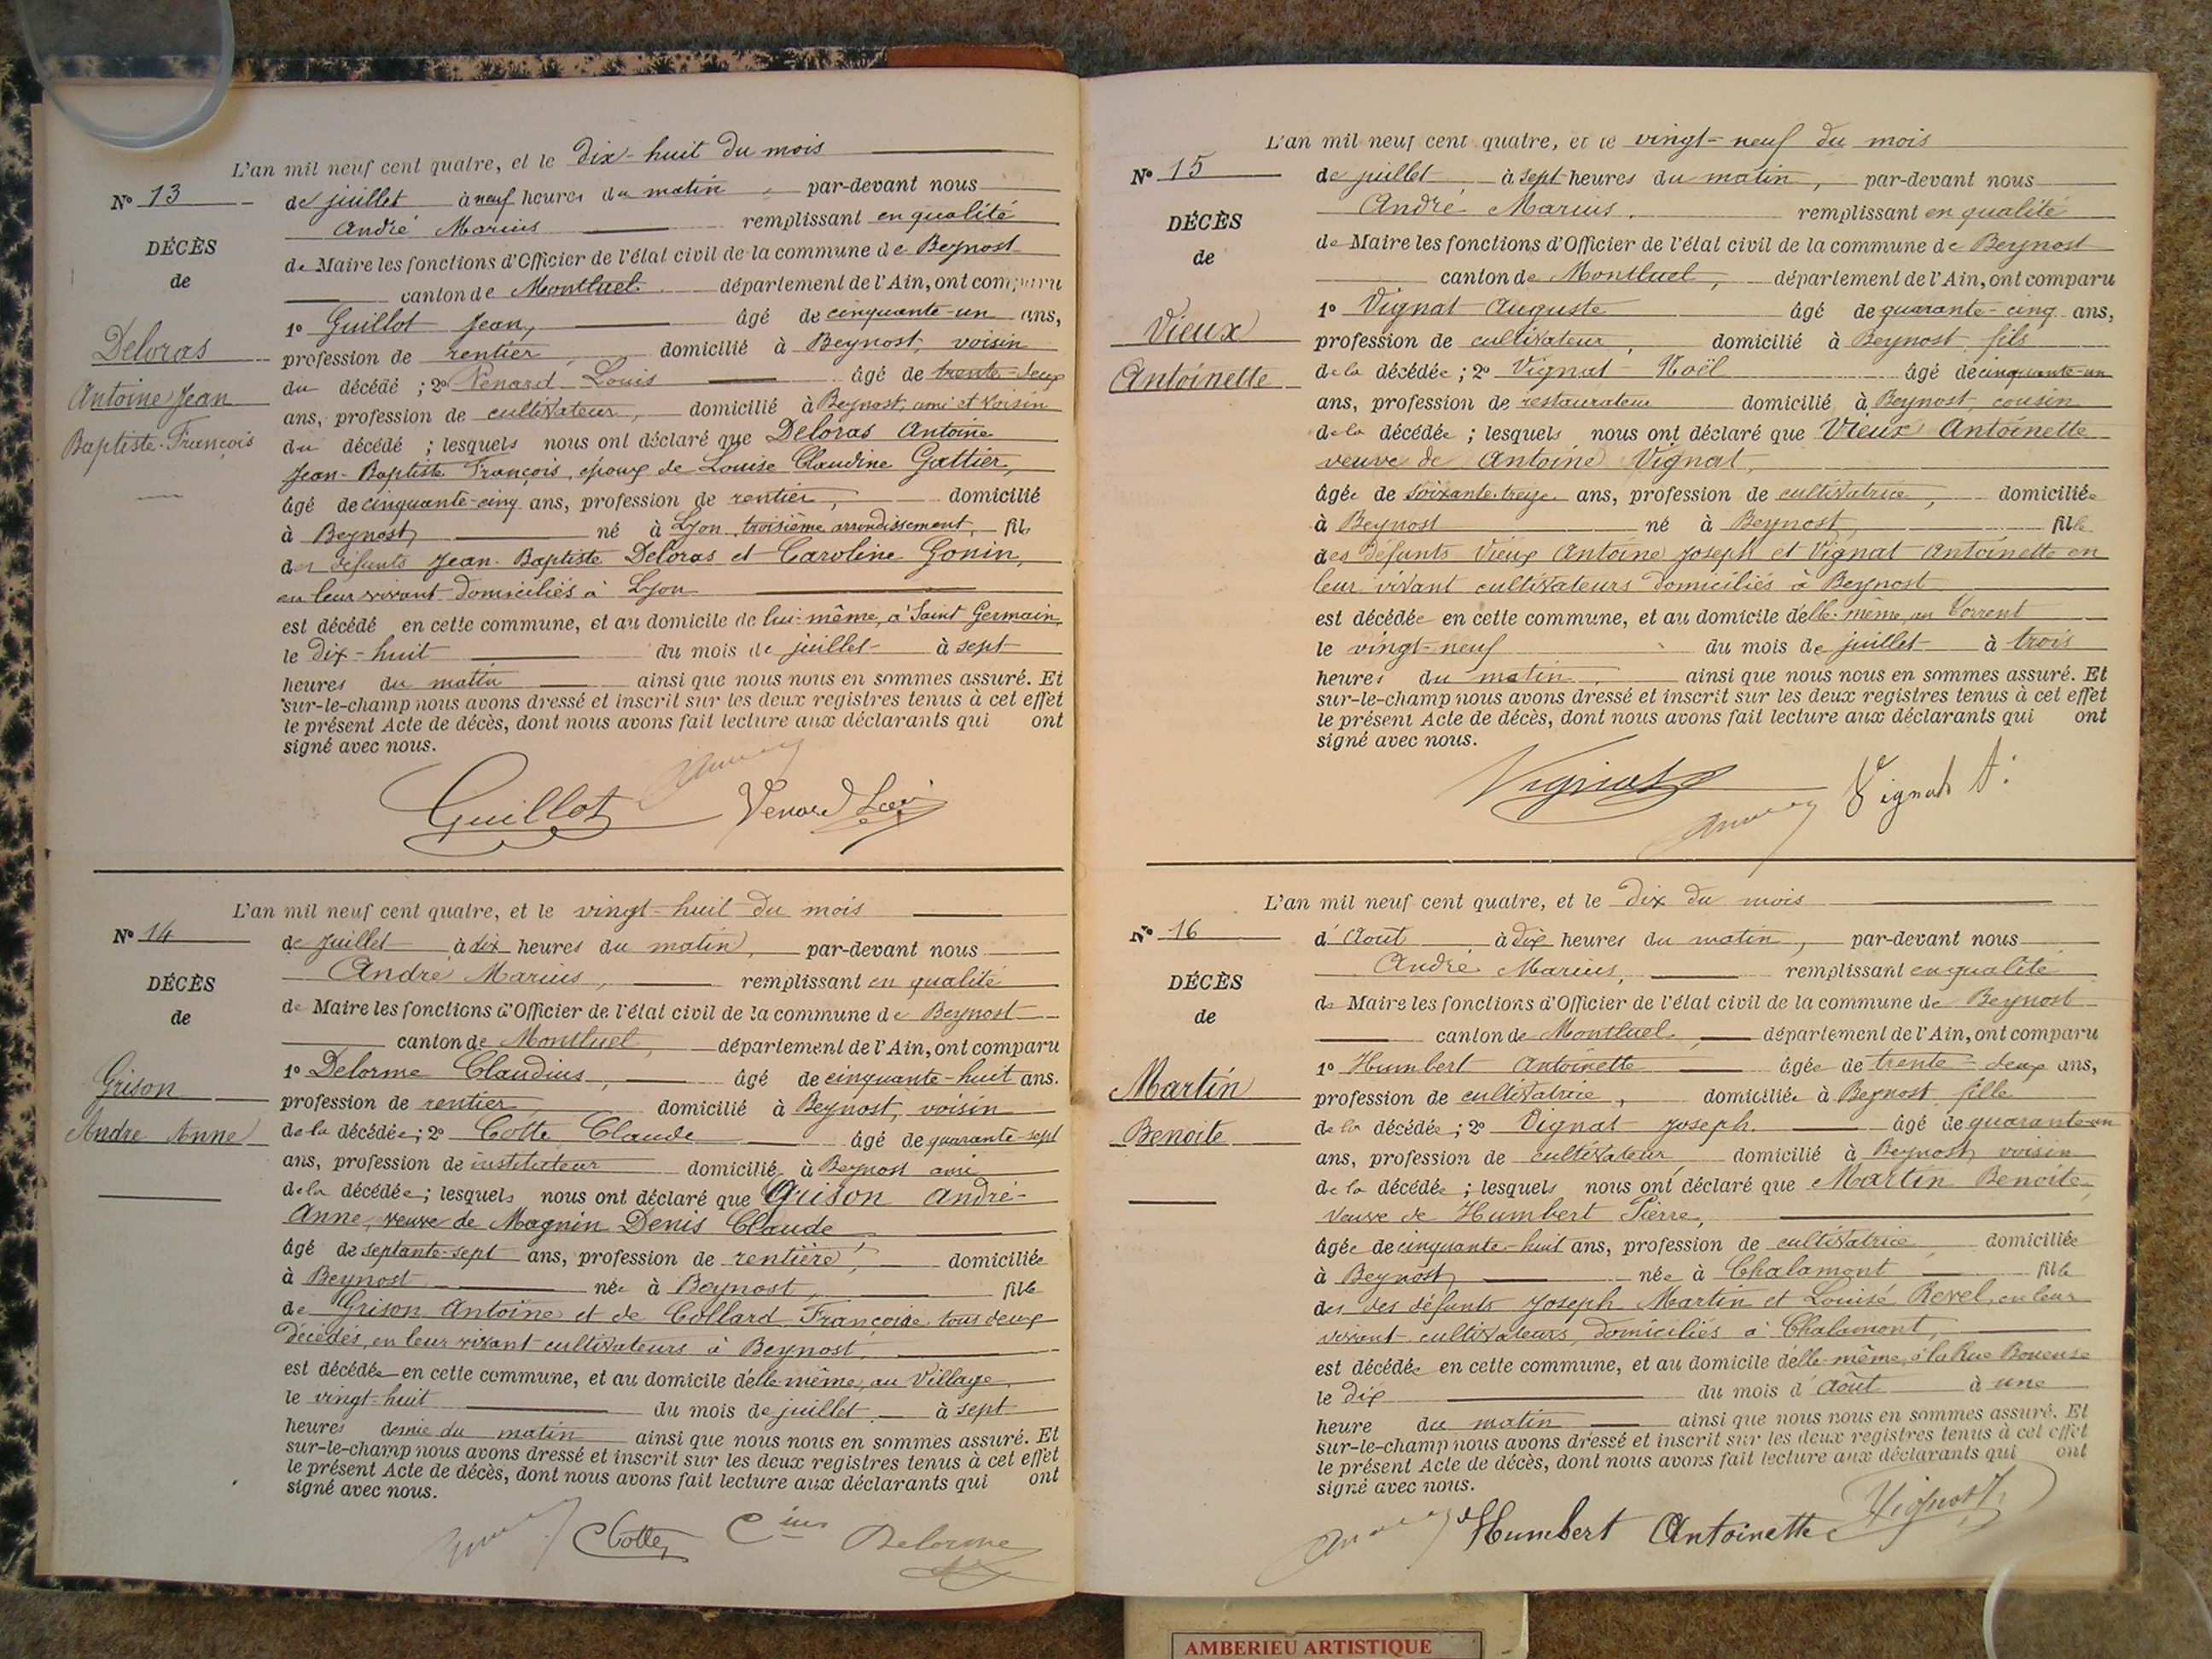 L'an mil neuf cent quatre, et le dix-huit du mois
N° 13
de juillet à neuf heures du matin, par-devant nous
André Marius remplissant en qualité
DÉCÈS
de
de Maire les fonctions d'Officier de l'état civil de la commune de Beynost
canton de Montluel département de l'Ain, ont comparu
1° Guillot Jean, âgé de cinquante-un ans,
Deloras
Antoine Jean
Baptiste François
profession de rentier domicilié à Beynost, voisin
du décédé ; 2° Venard Louis âgé de trente-deux
ans, profession de cultivateur, domicilié à Beynost, ami et voisin
du décédé ; lesquels nous ont déclaré que Deloras Antoine
Jean-Baptiste François, époux de Louise Claudine Gattier,
âgé de cinquante-cinq ans, profession de rentier, domicilié
à Beynost, né à Lyon, troisième arrondissement, fils
des défunts Jean-Baptiste Deloras et Caroline Gonin,
en leur vivant domiciliés à Lyon
est décédé en cette commune, et au domicile de lui-même, à Saint Germain,
le dix-huit du mois de juillet à sept
heures du matin ainsi que nous nous en sommes assuré. Et
sur-le-champ nous avons dressé et inscrit sur les deux registres tenus à cet effet
le présent Acte de décès, dont nous avons fait lecture aux déclarants qui ont
signé avec nous.
Guillot Venard
L'an mil neuf cent quatre, et le vingt-huit du mois
N° 14
de Juillet à dix heures du matin, par-devant nous
André Marius, remplissant en qualité
DÉCÈS
de
de Maire les fonctions d'Officier de l'état civil de la commune de Beynost
canton de Montluel, département de l'Ain, ont comparu
1° Delorme Claudius, âgé de cinquante-huit ans.
Grison
André Anne
profession de rentier domicilié à Beynost, voisin
de la décédée ; 2° Cotte Claude âgé de quarante-sept
ans, profession de instituteur domicilié à Beynost ami
de la décédée ; lesquels nous ont déclaré que Grison André-
Anne, veuve de Magnin Denis Claude
âgé de septante-sept ans, profession de rentière, domiciliée
à Beynost née à Beynost, fille
de Grison Antoine et de Collard Françoise tous deux
décédés, en leur vivant cultivateurs à Beynost,
est décédée en cette commune, et au domicile d'elle-même, au Village,
le vingt-huit du mois de juillet à sept
heures demie du matin ainsi que nous nous en sommes assuré. Et
sur-le-champ nous avons dressé et inscrit sur les deux registres tenus à cet effet
le présent Acte de décès, dont nous avons fait lecture aux déclarants qui ont
signé avec nous.
Cotte Cius Delorme
L'an mil neuf cent quatre, et le vingt-neuf du mois
N° 15
de juillet à sept heures du matin, par-devant nous
André Marius, remplissant en qualité
DÉCÈS
de
de Maire les fonctions d'Officier de l'état civil de la commune de Beynost
canton de Montluel, département de l'Ain, ont comparu
1° Vignat Auguste âgé de quarante-cinq ans,
Vieux
Antoinette
profession de cultivateur, domicilié à Beynost, fils
de la décédée ; 2° Vignat Noël âgé de cinquante-un
ans, profession de restaurateur domicilié à Beynost, cousin
de la décédée ; lesquels nous ont déclaré que Vieux Antoinette
veuve de Antoine Vignat,
âgée de soixante-treize ans, profession de cultivatrice, domiciliée
à Beynost né à Beynost, fille
des défunts Vieux Antoine Joseph et Vignat Antoinette en
leur vivant cultivateurs domiciliés à Beynost
est décédée en cette commune, et au domicile d'elle-même, au Torrent
le vingt-neuf du mois de juillet à trois
heures du matin, ainsi que nous nous en sommes assuré. Et
sur-le-champ nous avons dressé et inscrit sur les deux registres tenus à cet effet
le présent Acte de décès, dont nous avons fait lecture aux déclarants qui ont
signé avec nous.
Vignat Vignat A.
L'an mil neuf cent quatre, et le dix du mois
N° 16
d'Août à dix heures du matin, par-devant nous
André Marius, remplissant en qualité
DÉCÈS
de
de Maire les fonctions d'Officier de l'état civil de la commune de Beynost
canton de Montluel, département de l'Ain, ont comparu
1° Humbert Antoinette âgée de trente-deux ans,
Martin
Benoite
profession de cultivatrice, domiciliée à Beynost, fille
de la décédée ; 2° Vignat Joseph. âgé de quarante-un
ans, profession de cultivateur, domicilié à Beynost, voisin
de la décédée ; lesquels nous ont déclaré que Martin Benoite
veuve de Humbert Pierre,
âgée de cinquante-huit ans, profession de cultivatrice domiciliée
à Beynost, née à Chalamont fille
des des défunts Joseph Martin et Louise Revel, en leur
vivant cultivateurs, domiciliés à Chalamont,
est décédée en cette commune, et au domicile d'elle-même, à la Rue Boueuse
le dix du mois d'Août à une
heure du matin ainsi que nous nous en sommes assuré. Et
sur-le-champ nous avons dressé et inscrit sur les deux registres tenus à cet effet
le présent Acte de décès, dont nous avons fait lecture aux déclarants qui ont
signé avec nous.
Humbert Antoinette Vignat
AMBERIEU ARTISTIQUE